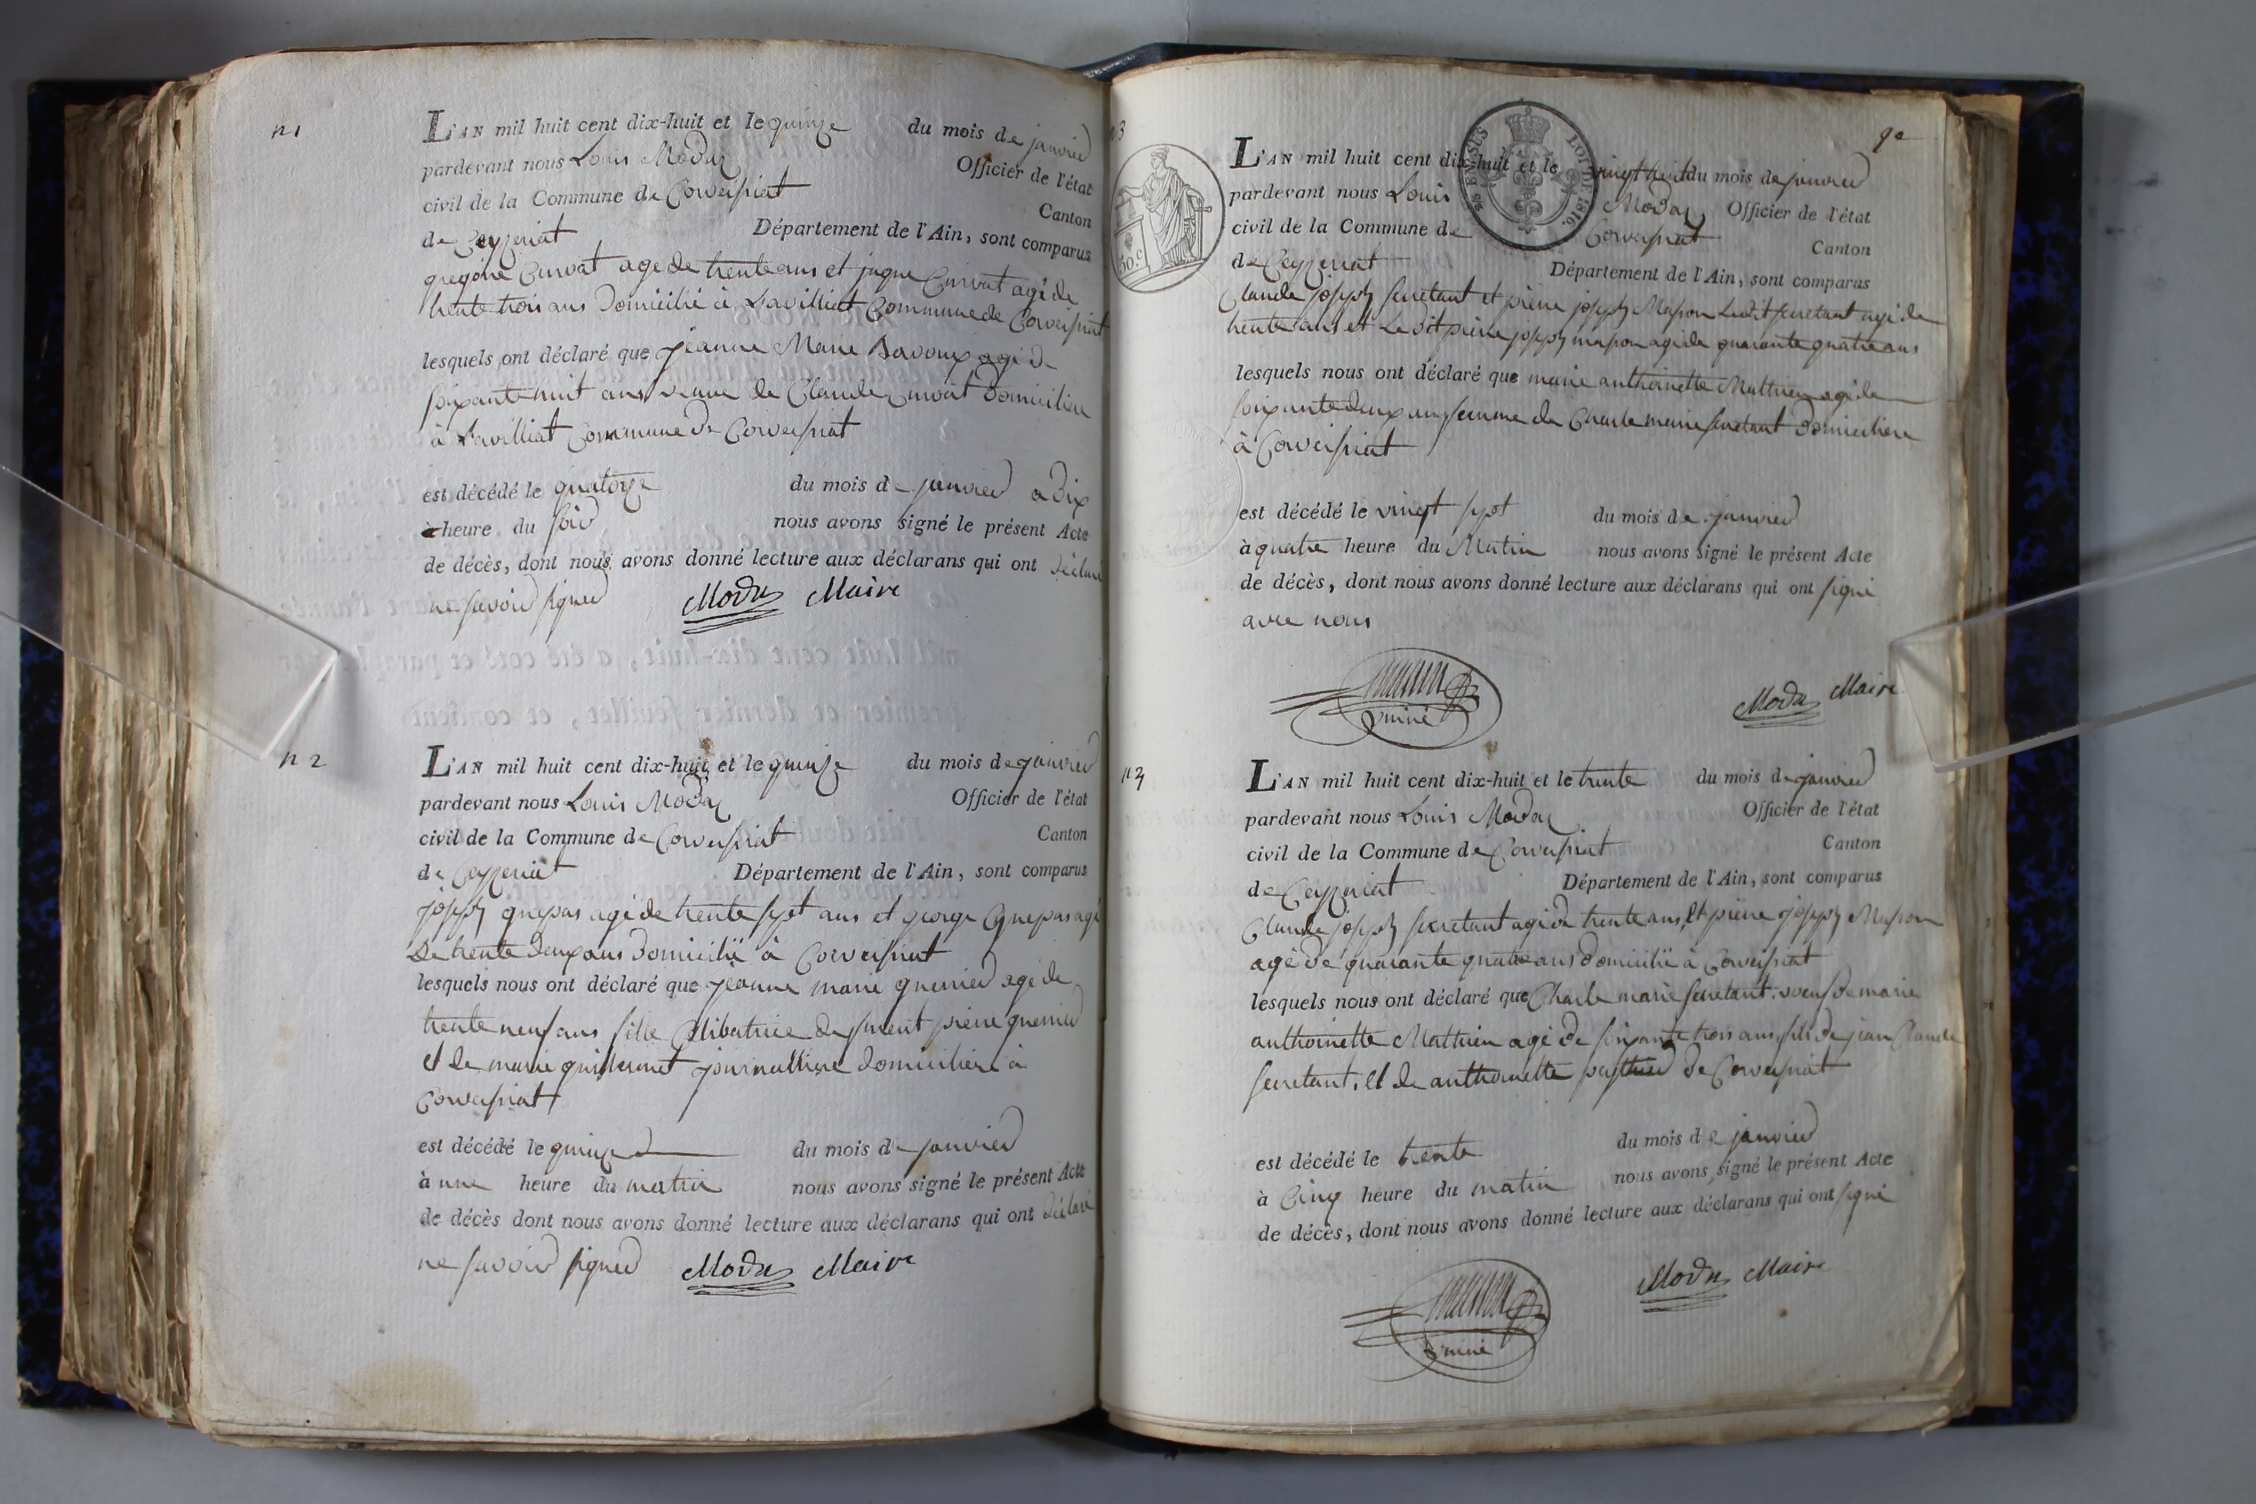 n 1
L'AN mil huit cent dix-huit et le quinze du mois de janvier
pardevant nous Louis Modas Officier de l'état
civil de la Commune de Corveissiat Canton
de Ceyzeriat Département de l'Ain, sont comparus
gregoire Curvat age de trente ans et jaque Curvat agé de
trente trois ans Domicilié à Lavilliat Commune de Corveissiat
lesquels ont déclaré que jeanne Marie Savoux agé de
soixante huit ans veuve de Claude Curvat Domiciliee
à Lavilliat Commune de Corveissiat
est décédé le quatorze du mois de janvier a Dix
heure du soir nous avons signé le présent Acte
de décès, dont nous avons donné lecture aux déclarans qui ont déclaré
ne savoir signer Modas Maire
n 2
L'AN mil huit cent dix-huit et le quinze du mois de janvier
pardevant nous Louis Modas Officier de l'état
civil de la Commune de Corveissiat Canton
de Ceyzeriat Département de l'Ain, sont comparus
joseph quepas agé de trente sept ans et george quepas agé
De trente Deux ans Domicilié à Corveissiat
lesquels nous ont déclaré que jeanne marie guerrier agé de
trente neuf ans fille Celibatrice de pierre guerrier
et de marie journalliere domiciliere à
Corveissiat
est décédé le quinze du mois de janvier
à une heure du matin nous avons signé le présent Acte
de décès dont nous avons donné lecture aux déclarans qui ont déclaré
ne savoir signer Modas Maire
n 3
9e
50.c
L'AN mil huit cent dix-huit et le vingt huit du mois de janvier
pardevant nous Louis Modas Officier de l'état
civil de la Commune de Corveissiat Canton
de Ceyzeriat Département de l'Ain, sont comparus
Claude joseph secretant et pierre joseph Masson Ledit secretant agé de
trente ans et Le dit pierre joseph masson agé de quarante quatre ans
lesquels nous ont déclaré que marie anthoinette Mathieu agé de
soixante deux ans femme de Charle marie secretant Domiciliere
à Corveissiat
est décédé le vingt sept du mois de janvier
à quatre heure du Matin nous avons signé le présent Acte
de décès, dont nous avons donné lecture aux déclarans qui ont signé
avec nous
Modas Maire
n 4
L'AN mil huit cent dix-huit et le trente du mois de janvier
pardevant nous Louis Modas Officier de l'état
civil de la Commune de Corveissiat Canton
de Ceyzeriat Département de l'Ain, sont comparus
Claude joseph secretant agé de trente ans, et pierre joseph Masson
agé de quarante quatre ans domicilié à Corveissiat
lesquels nous ont déclaré que Charle marie secretant. veuf de marie
anthoinette Mathieu agé de soixante trois ans fils de jean Claude
secretant, et de anthoinette de Corveissiat
est décédé le trente du mois de janvier
à Cinq heure du matin nous avons signé le présent Acte
de décès, dont nous avons donné lecture aux déclarans qui ont signé
Modas Maire